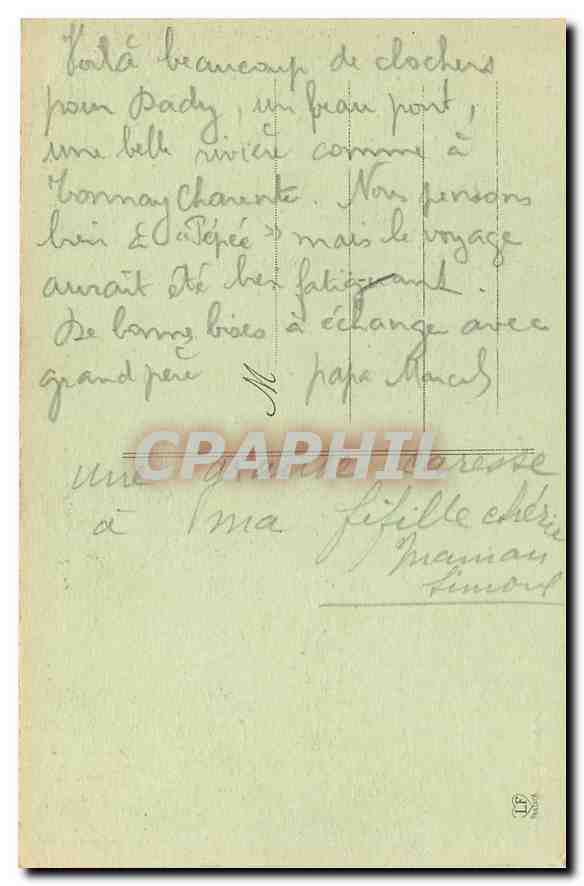 Voilà beaucoup de clochers
pour Dady, un beau pont,
une belle rivière comme à
Tonnay Charente. Nous pensons
bien à "Pépée" mais le voyage
aurait été bien fatiguant.
De bonnes bises à échange avec
grand père papa Marcel
M
CPARPHIL
une grande caresse
à ma fifille chérie
maman
Simone
LF